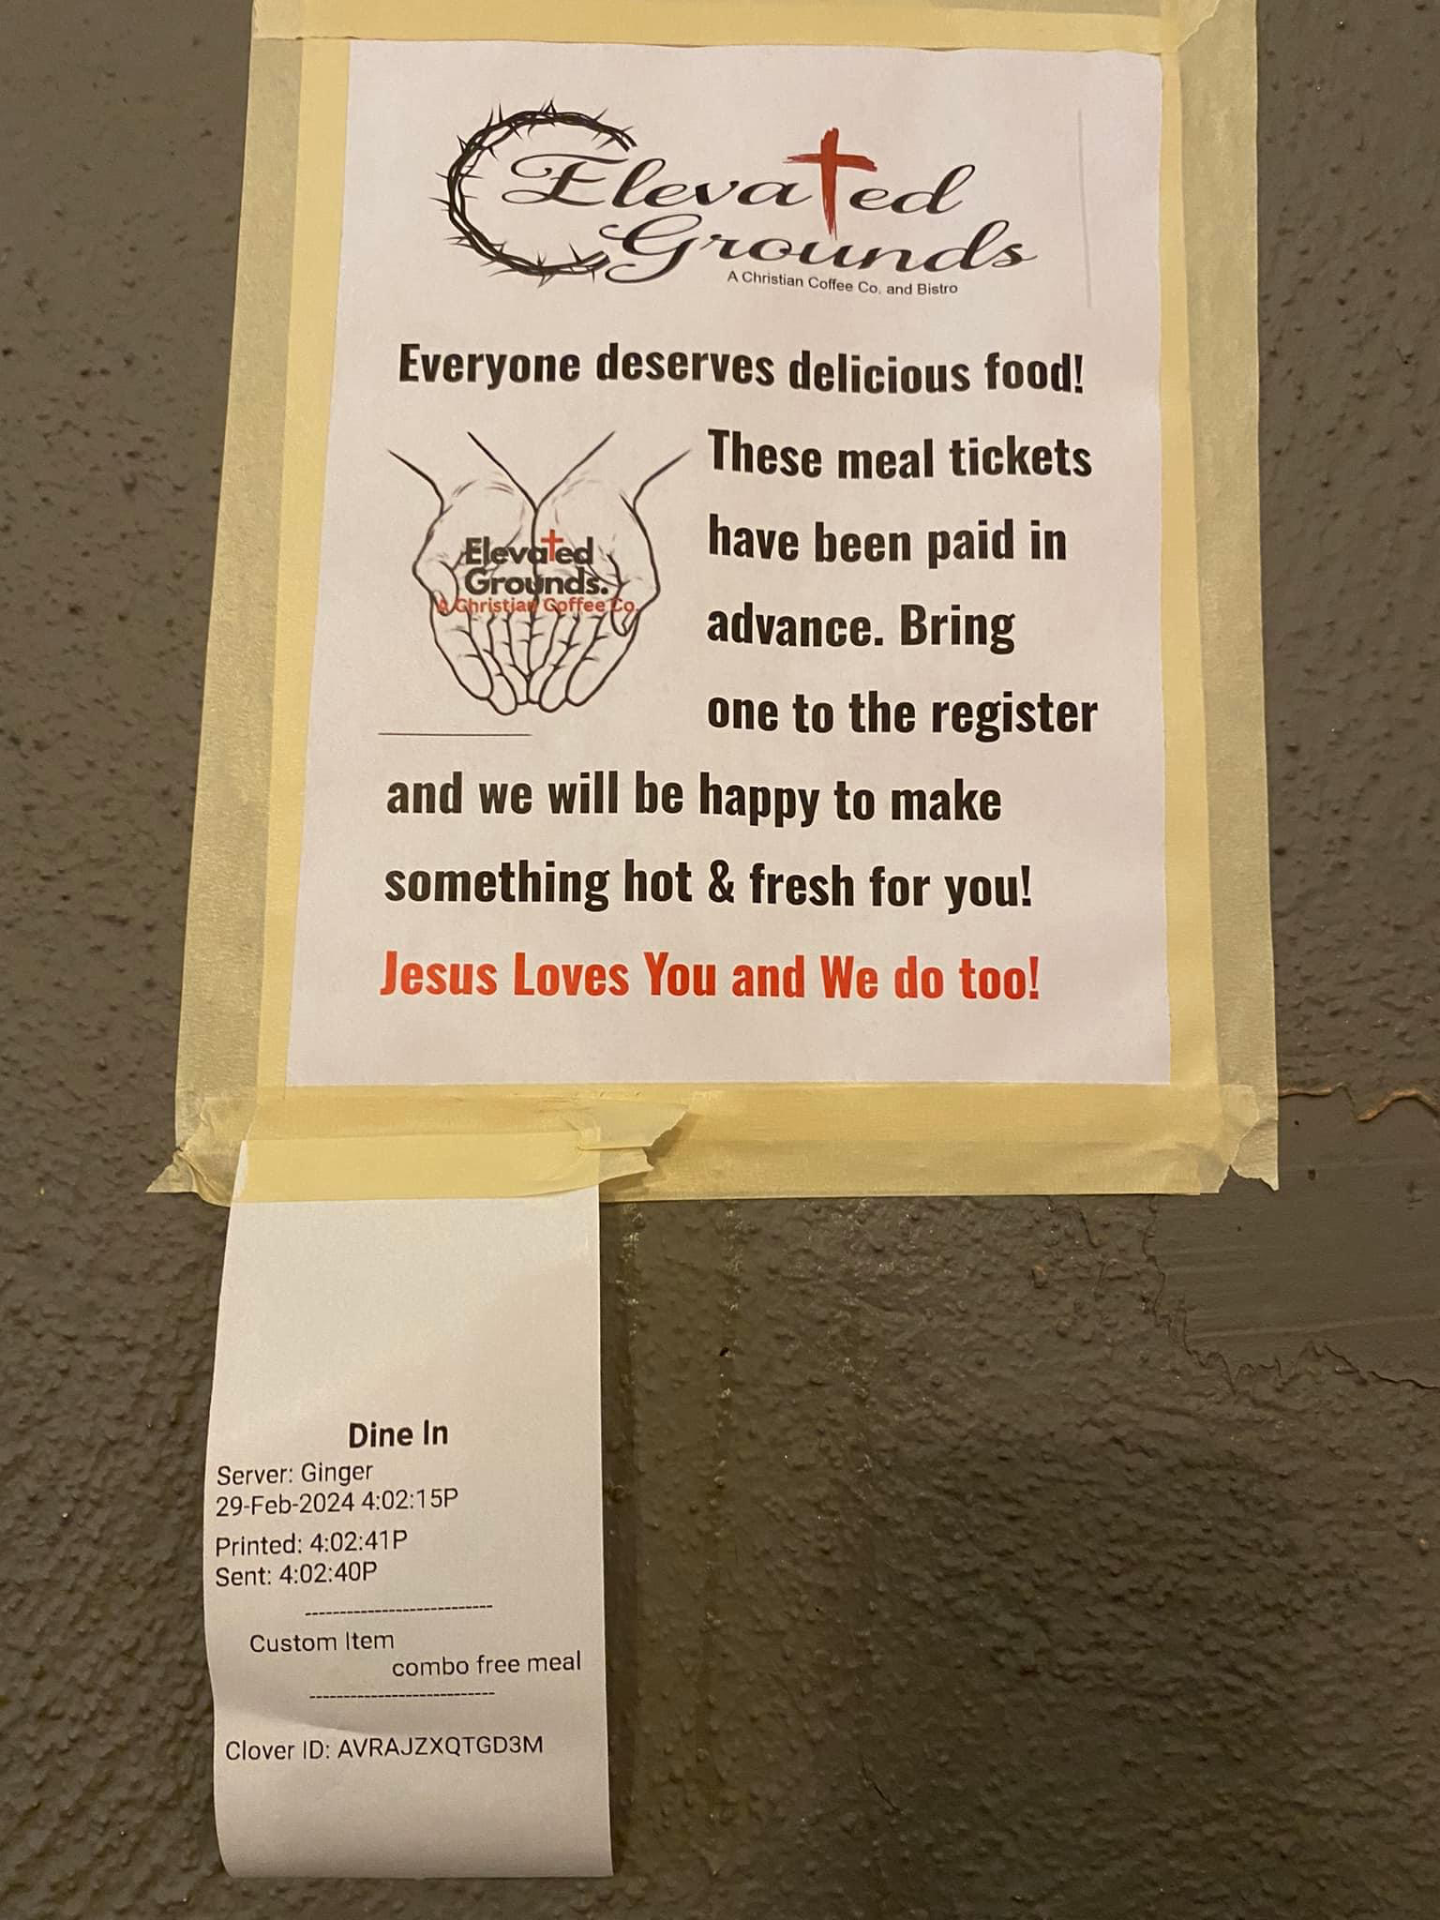 Elevated
Grounds
A Christian Coffee Co. and Bistro
Everyone deserves delicious food!
Elevated
Grounds.
A Christian Coffee Co.
These meal tickets
have been paid in
advance. Bring
one to the register
and we will be happy to make
something hot & fresh for you!
Jesus Loves You and We do too!
Dine In
Server: Ginger
29-Feb-2024 4:02:15P
Printed: 4:02:41P
Sent: 4:02:40P
---------------------------
Custom Item
combo free meal
---------------------------
Clover ID: AVRAJZXQTGD3M